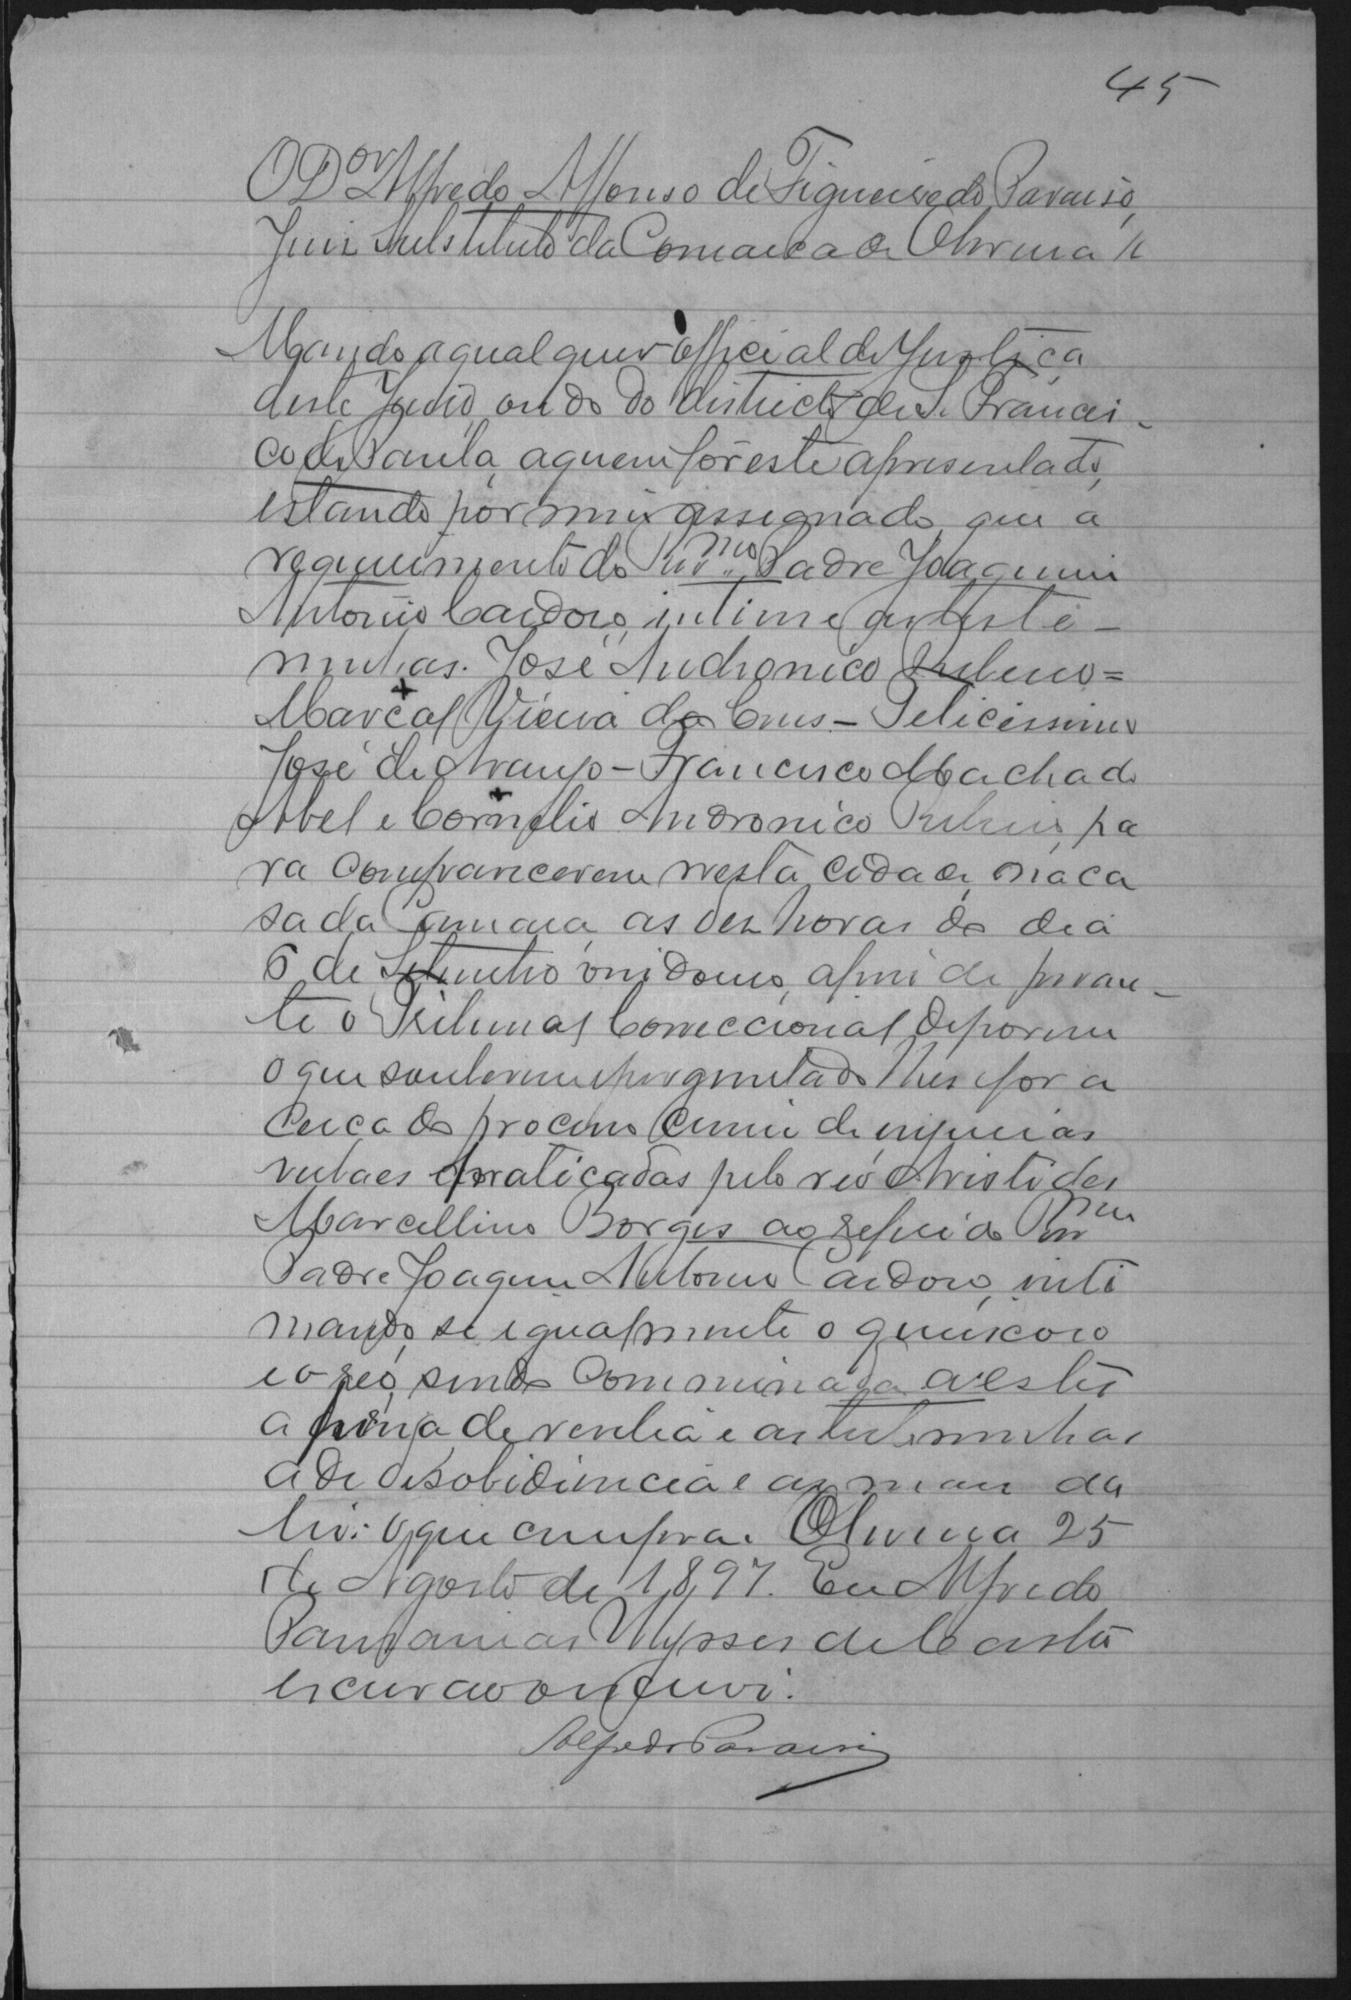 45
O Dor Alfredo Affonso de Figueiredo Paraiso,
Juiz Substituto da Comarca de Oliveira //
Mando a qualquer official de Justiça
deste Juizo, ou do do districto de S. Francis-
co de Paula, a quem fôr este apresentado,
estando por mim assignado, que a
requerimento do Revmo Padre Joaquim
Antonio Cardoso, intime as teste-
munhas. José Andronico Ribeiro =
Marçal Vieira da Crus - Felicissimo
José de Araujo - Francisco Machado
Abel e Cornelio Andronico Ribeiro, pa
ra comparecerem nesta cidade, na ca
sa da Camara, as dez horas do dia
6 de Setembro vindouro, afim de peran-
te o Tribunal Correccional deporem
o que souberem e perguntado lhes for a
cerca do processo crime de injurias
verbaes praticadas pelo reo Aristides
Marcellino Borges ao referido Revmo
Padre Joaquim Antonio Cardoso, inti
mando, se igualmente o queixoso
e o reo, sendo comminada a este
a pena de revelia e as testemunhas
a de desobidiencia e as mais da
lei: O que cumpra. Oliveira 25
de Agosto de 1897. Eu Alfredo
Pausanias Ulysses de Casta
escrivao o escrevi.
Alfredo Paraiso